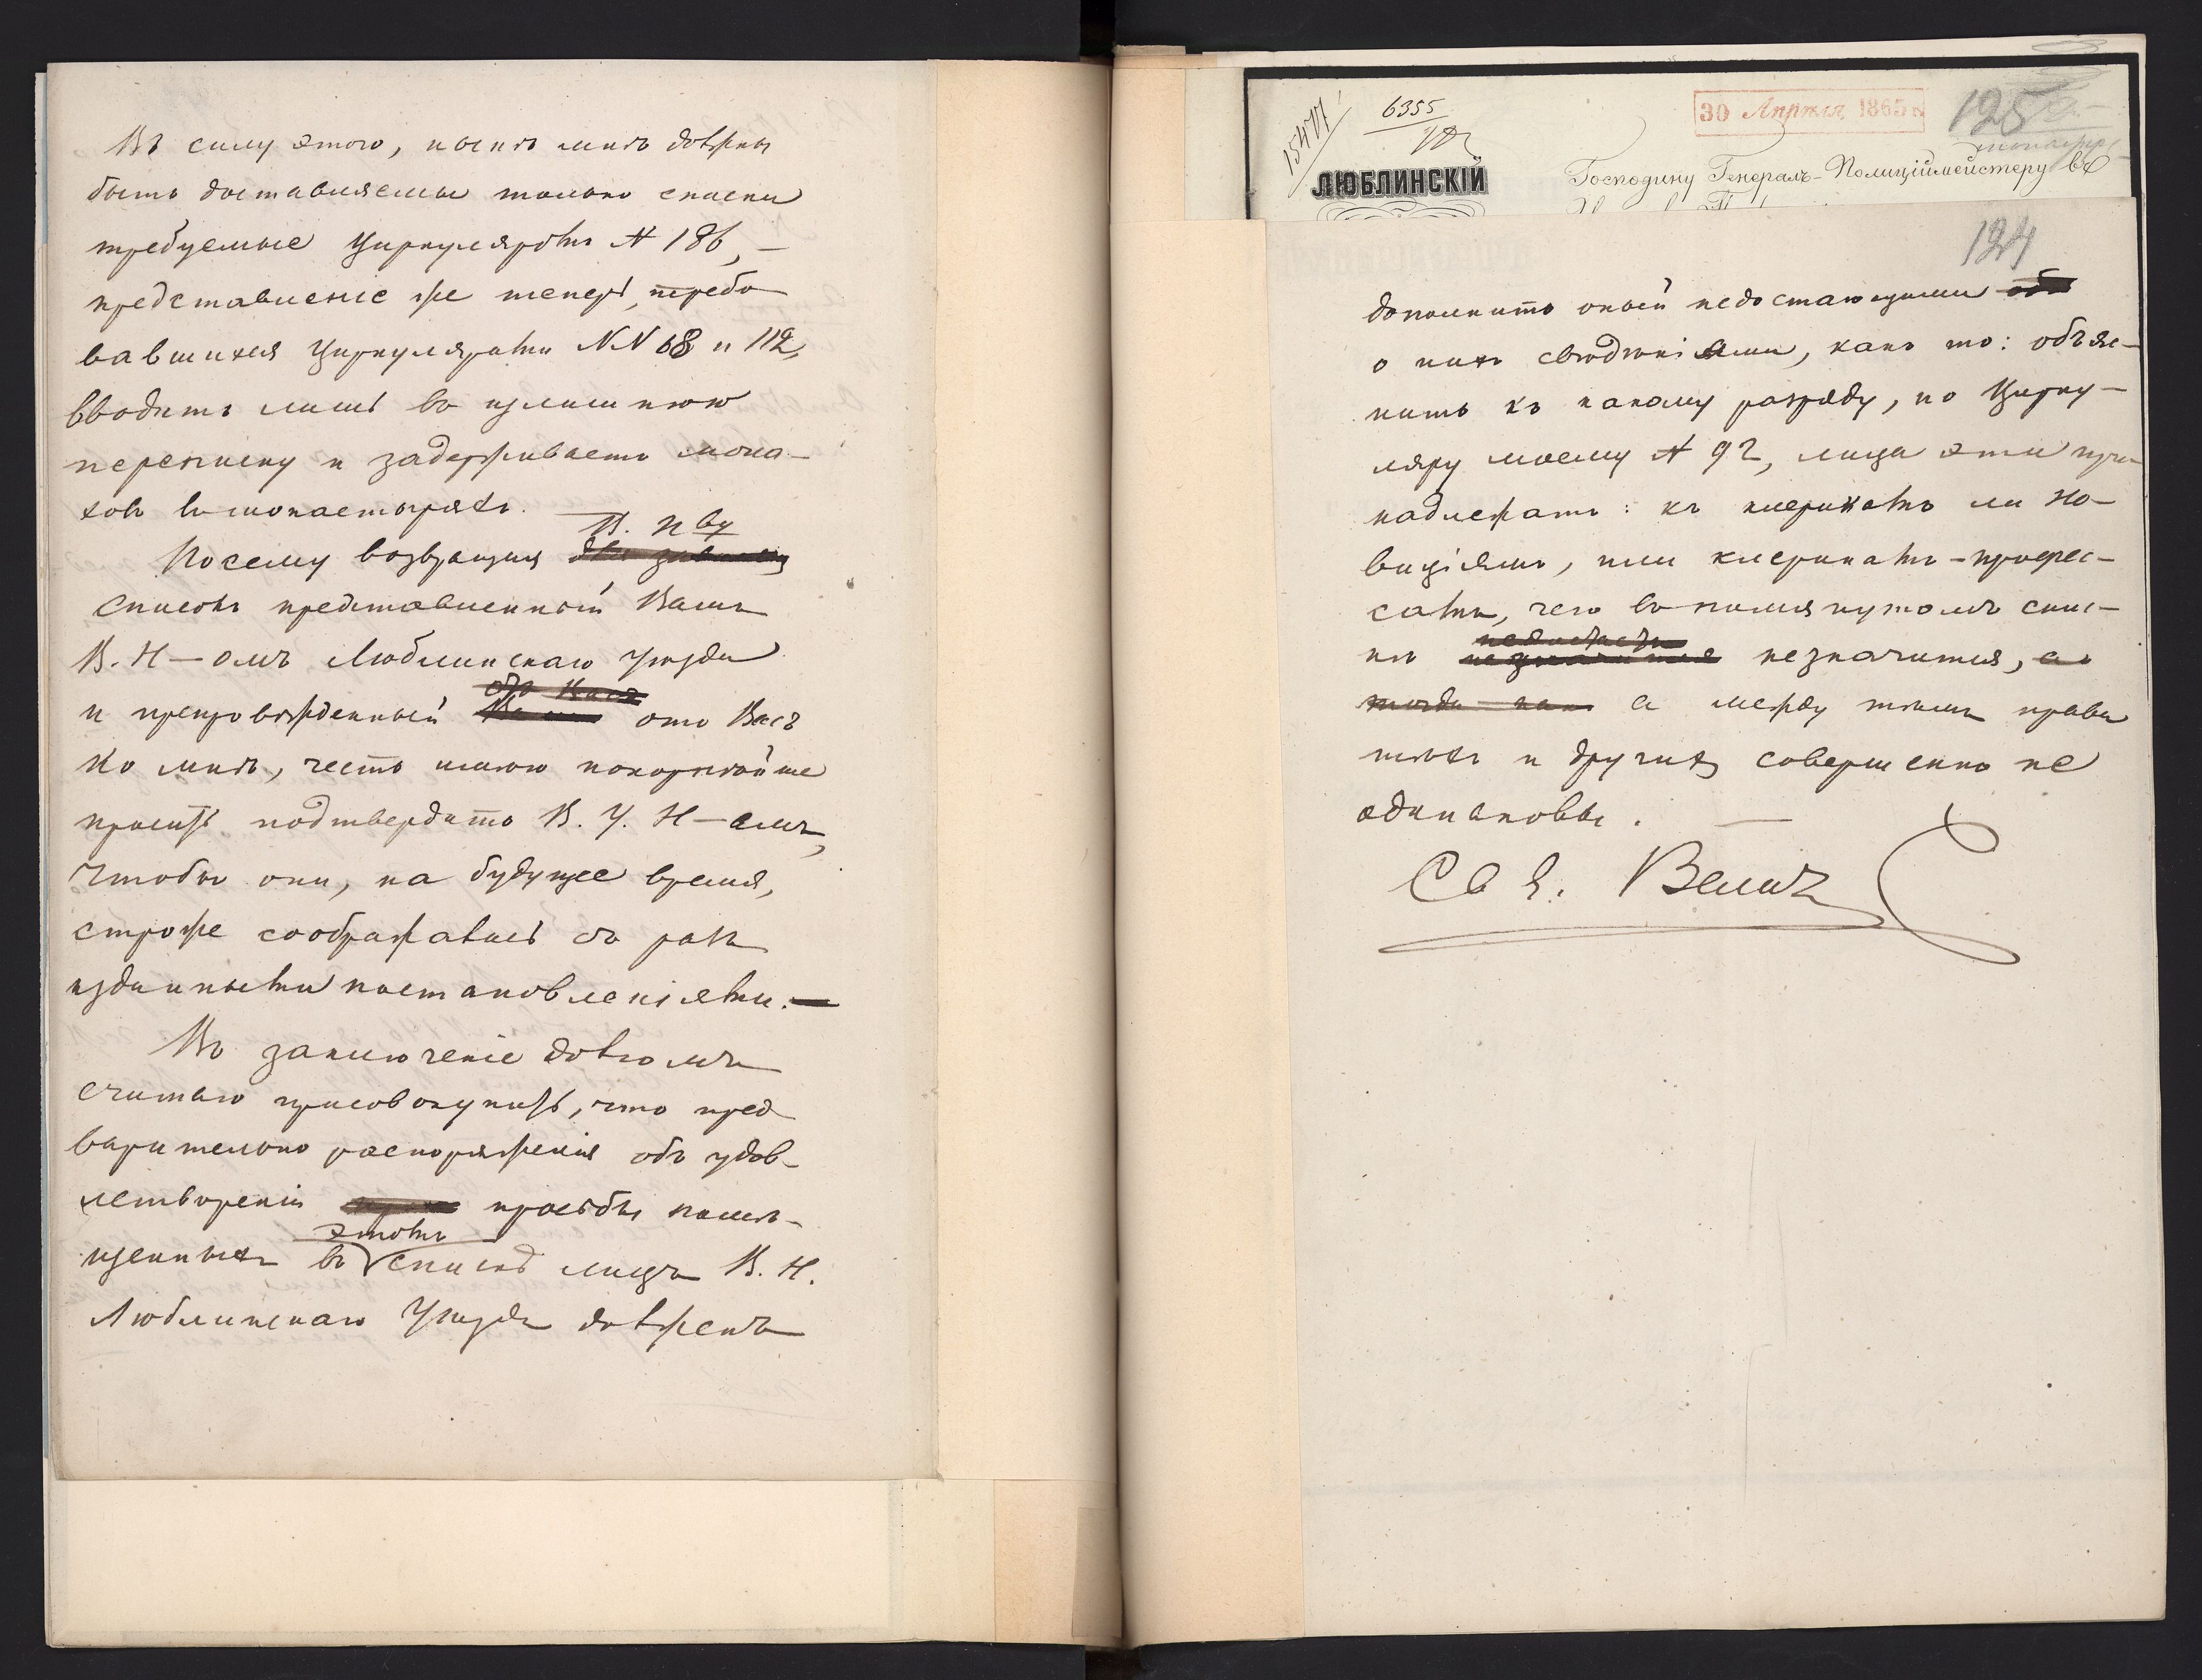 Въ силу этого, нынѣ мнѣ должны
быть доставляемы только списки
требуемые Циркуляромъ № 186, —
представленіе же теперь требо
вавшихся Циркулярами NN 68 и 112,
вводитъ лишь въ излишнюю
переписку и задерживаетъ мона-
ховъ въ монастыряхъ.
В. Пву
Посему возвращая
списокъ представленный Вамъ
В. Н—омъ Люблинскаго Уѣзда
отъ Васъ
и препровожденный отъ Васъ
ко мнѣ, честь имѣю покорнѣйше
просить подтвердить В. У. Н—амъ,
чтобы они, на будущее время,
строже соображались съ раз
изданными постановленіями. —
Въ заключеніе долгомъ
считаю присовокупить, что пред
варительно распоряженія объ удов-
летвореніи просьбы помѣ-
этомъ
щенныхъ въ спискѣ лицъ В. Н.
Люблинскаго Уѣзда долженъ
15477
6355
30 Апрѣля 1865
125
ЛЮБЛИНСКІЙ
Господину Генералъ-Полиціймейстеру въ
124
дополнить оный недостающими
о нихъ свѣдѣніями, какъ то: объяс-
нить къ какому разряду, по Цирку-
ляру моему № 92, лица эти при
надлежатъ: къ клерикамъ ли но-
виціямъ, или клерикамъ-профес-
самъ, чего въ помянутомъ спис-
кѣ незначится, а
тогда какъ а между тѣмъ права
тѣхъ и другихъ совершенно не
одинаковы.